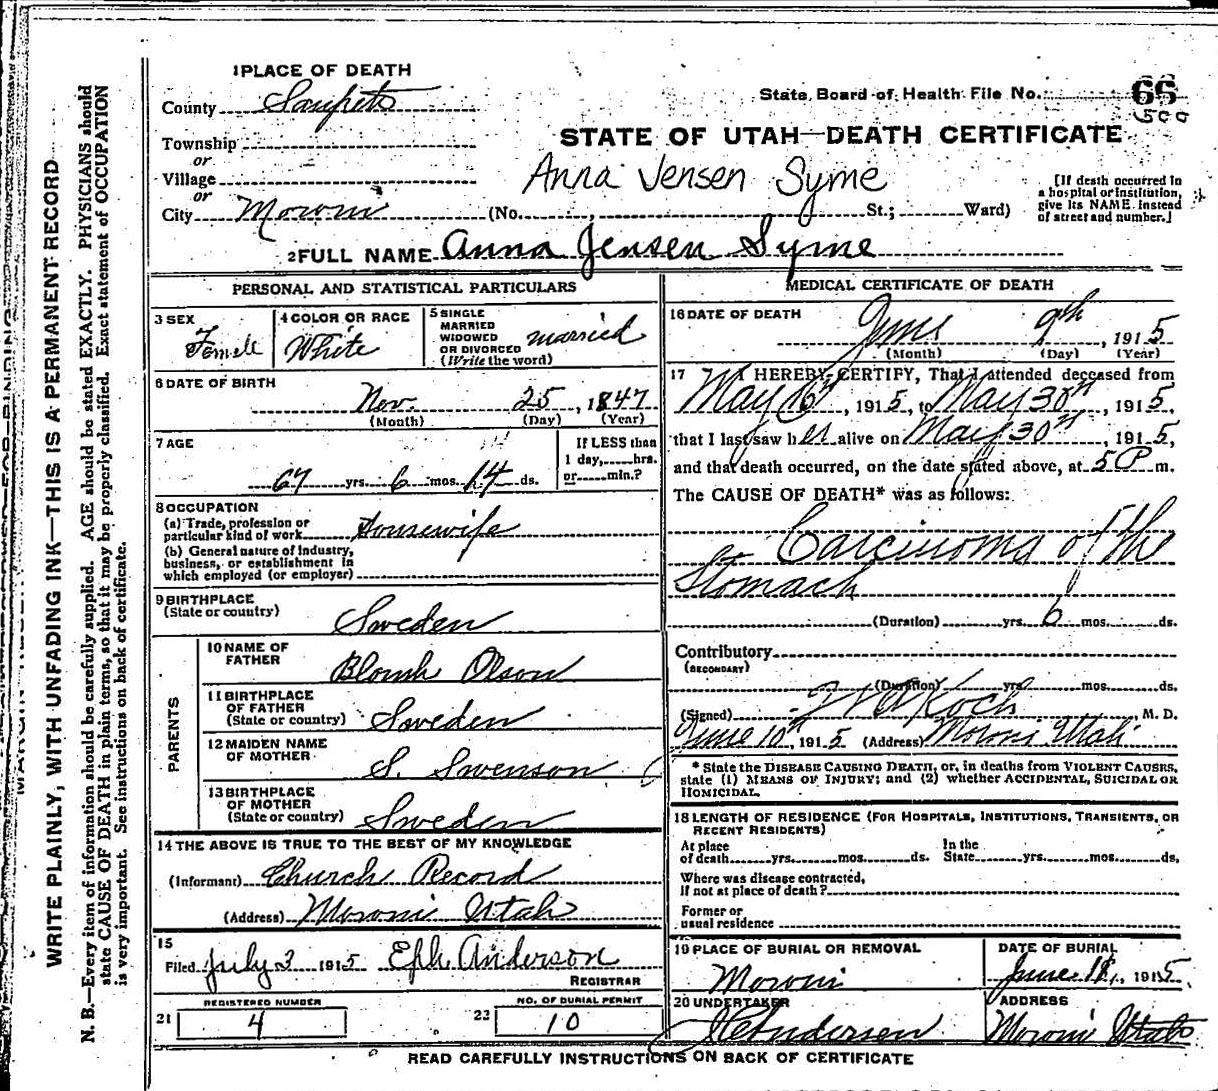 1 PLACE OF DEATH
County Sanpete
State Board of Health File No. 66
Township
or
STATE OF UTAH—DEATH CERTIFICATE
Village
or
Anna Jensen Syme
[If death occurred in
a hospital or institution,
give its NAME instead
of street and number.]
City Moroni (No. , St.; Ward)
2 FULL NAME Anna Jensen Syme
PERSONAL AND STATISTICAL PARTICULARS
3 SEX
Femele
4 COLOR OR RACE
White
5 SINGLE
MARRIED
WIDOWED
OR DIVORCED
(Write the word)
married
6 DATE OF BIRTH
Nov. 25, 1847
(Month) (Day) (Year)
7 AGE
67 yrs. 6 mos. 14 ds.
If LESS than
1 day, hrs.
or min.?
8 OCCUPATION
(a) Trade, profession or
particular kind of work Housewife
(b) General nature of Industry,
business, or establishment in
which employed (or employer)
9 BIRTHPLACE
(State or country)
Sweden
PARENTS
10 NAME OF
FATHER
Olson
11 BIRTHPLACE
OF FATHER
(State or country) Sweden
12 MAIDEN NAME
OF MOTHER
S. Swenson
13 BIRTHPLACE
OF MOTHER
(State or country) Sweden
14 THE ABOVE IS TRUE TO THE BEST OF MY KNOWLEDGE
(Informant) Church Record
(Address) Moroni Utah
15
Filed July 3 1915 Eph Anderson
REGISTRAR
REGISTERED NUMBER
21 4
NO. OF BURIAL PERMIT
22 10
MEDICAL CERTIFICATE OF DEATH
16 DATE OF DEATH
June 9th, 1915
(Month) (Day) (Year)
17 I HEREBY CERTIFY, That I attended deceased from
May 16th, 1915, to May 30th, 1915,
that I last saw her alive on May 30th, 1915,
and that death occurred, on the date stated above, at 5 P m.
The CAUSE OF DEATH* was as follows:
Carcinoma of the
Stomach
(Duration) yrs. 6 mos. ds.
Contributory
(SECONDARY)
(Duration) yrs. mos. ds.
(Signed) Koch, M. D.
June 10th, 1915 (Address) Moroni Utah
* State the DISEASE CAUSING DEATH, or, in deaths from VIOLENT CAUSES,
state (1) MEANS OF INJURY; and (2) whether ACCIDENTAL, SUICIDAL OR
HOMICIDAL.
18 LENGTH OF RESIDENCE (FOR HOSPITALS, INSTITUTIONS, TRANSIENTS, OR
RECENT RESIDENTS)
At place
of death yrs. mos. ds.
In the
State yrs. mos. ds.
Where was disease contracted,
If not at place of death?
Former or
usual residence
19 PLACE OF BURIAL OR REMOVAL
Moroni
DATE OF BURIAL
June 1915
20 UNDERTAKER
Andersen
ADDRESS
Moroni Utah
READ CAREFULLY INSTRUCTIONS ON BACK OF CERTIFICATE
WRITE PLAINLY, WITH UNFADING INK—THIS IS A PERMANENT RECORD
N. B.—Every item of information should be carefully supplied. AGE should be stated EXACTLY. PHYSICIANS should
state CAUSE OF DEATH in plain terms, so that it may be properly classified. Exact statement of OCCUPATION
is very important. See instructions on back of certificate.